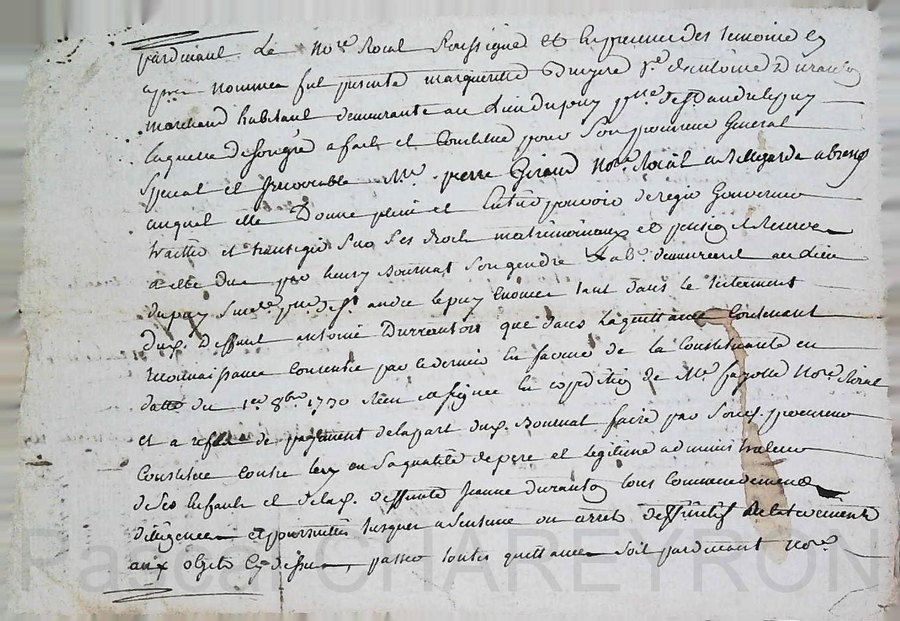 pardevant Le Nore Roial soussigné et En presence des temoins cy
apres nommes fut presente margueritte Bruyere ve d'antoine Duranton
marchand habitant demeurante au Lieu du puy psse de St andre le puy
Laquelle de son gré a fait et Constitué pour Son procureur General
Special et Irrevocable Me pierre Giraud Nore Roial a Bellegarde absent
auquel elle Donne plein et Entier pouvoir de regir Gouverner
traitter et transiger Sur Ses droits matrimoniaux et pension
a elle due par henry Bournat Son gendre Labr demeurant au Lieu
du puy Susdt psse de St andre le puy Enoncée tant dans Le testament
dud. Deffunt antoine Duranton que dans La quittance Contenant
reconnaissance Consentie par ce dernier En faveur de la Constituante en
datte du 1er 8bre 1770 signée En expedition de Me fayolle Nore Roial
et a reffus de payement de la part dud. Bournat faire par Sond. procureur
Constitué Contre luy en Sa qualité de pere et Legitime administrateur
de Ses Enfants et de lad. deffunte Jeanne duranton tous Commandements
diligences et poursuittes Jusques a Sentence ou arrest deffinitif
aux objets Cy dessus, passer toutes quittances Soit pardevant Nore
Pascal CHAREYRON